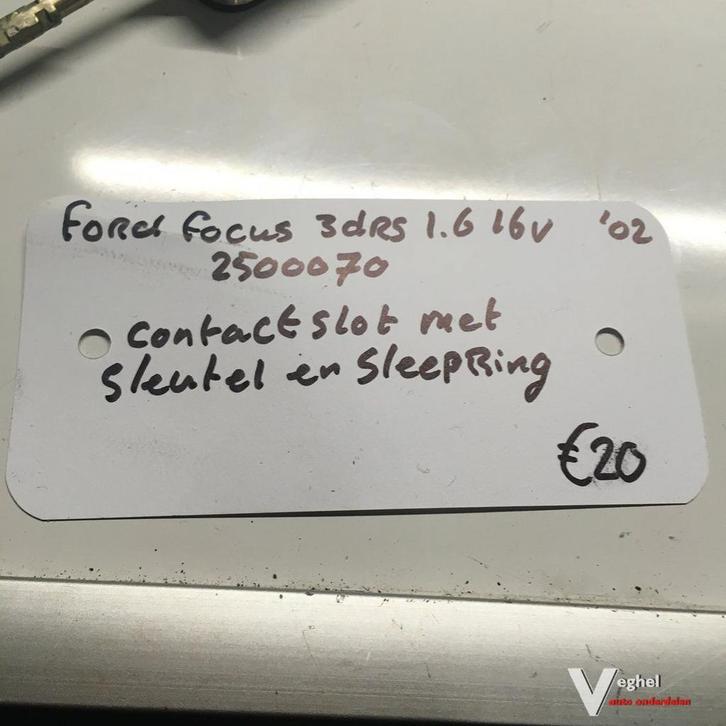 Ford Focus 3dRS 1.6 16v '02
2500070
contactslot met
sleutel en sleepRing
€20
Veghel
auto onderdelen